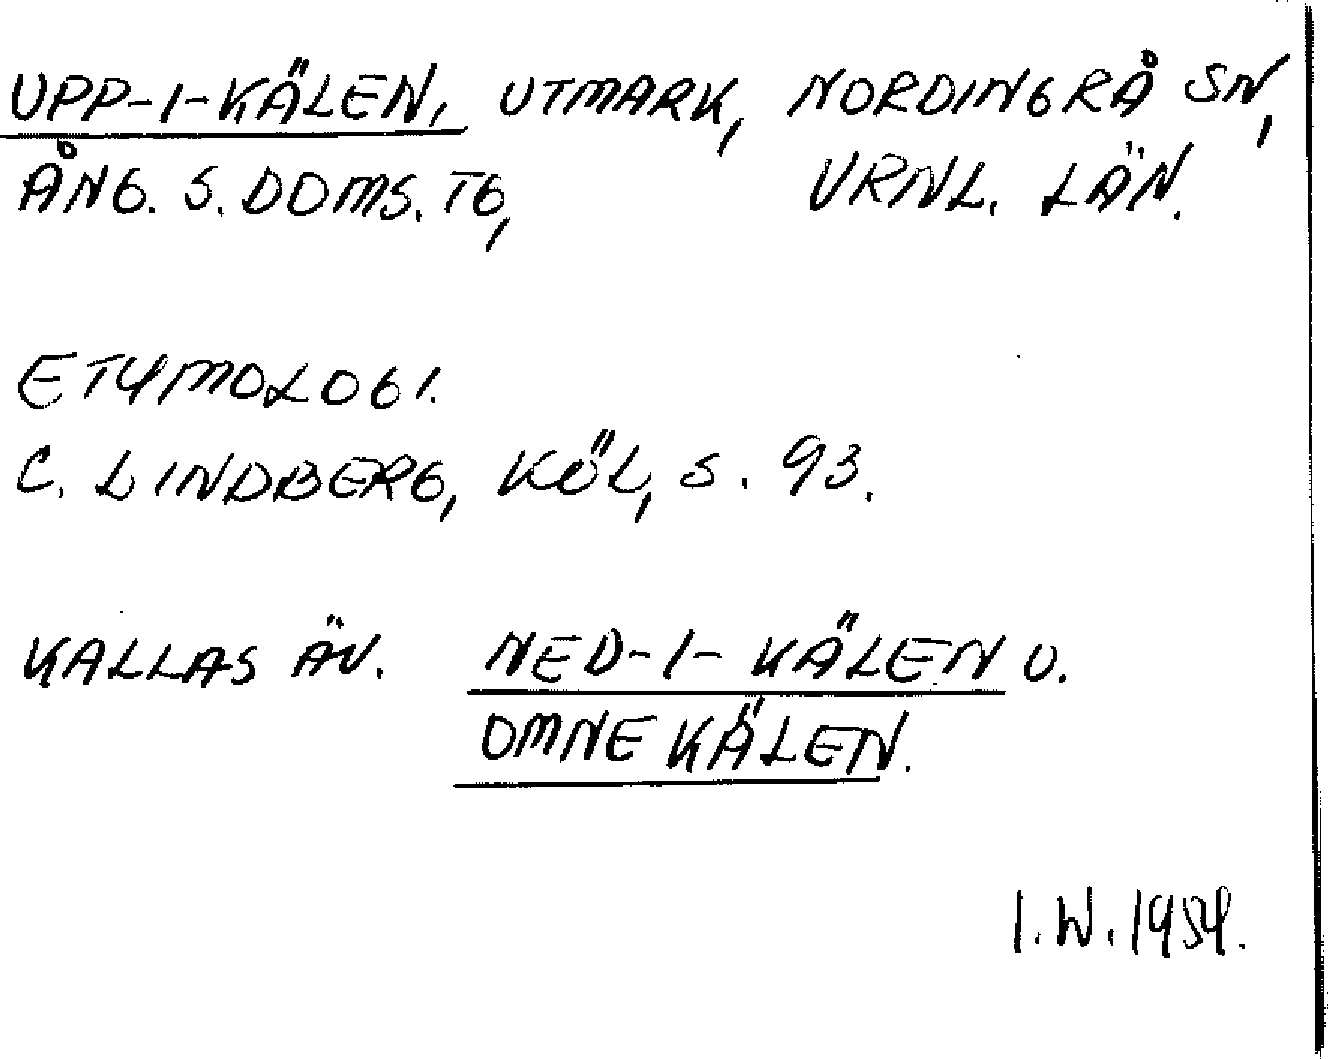 UPP-I-KÄLEN, UTMARK, NORDINGRÅ SN,
ÅNG. S. DOMS. TG, VRNL. LÄN.
ETYMOLOGI.
C. LINDBERG, KÖL, S. 93.
KALLAS ÄV. NED-I-KÄLEN O.
OMNEKÄLEN.
I.W. 1984.